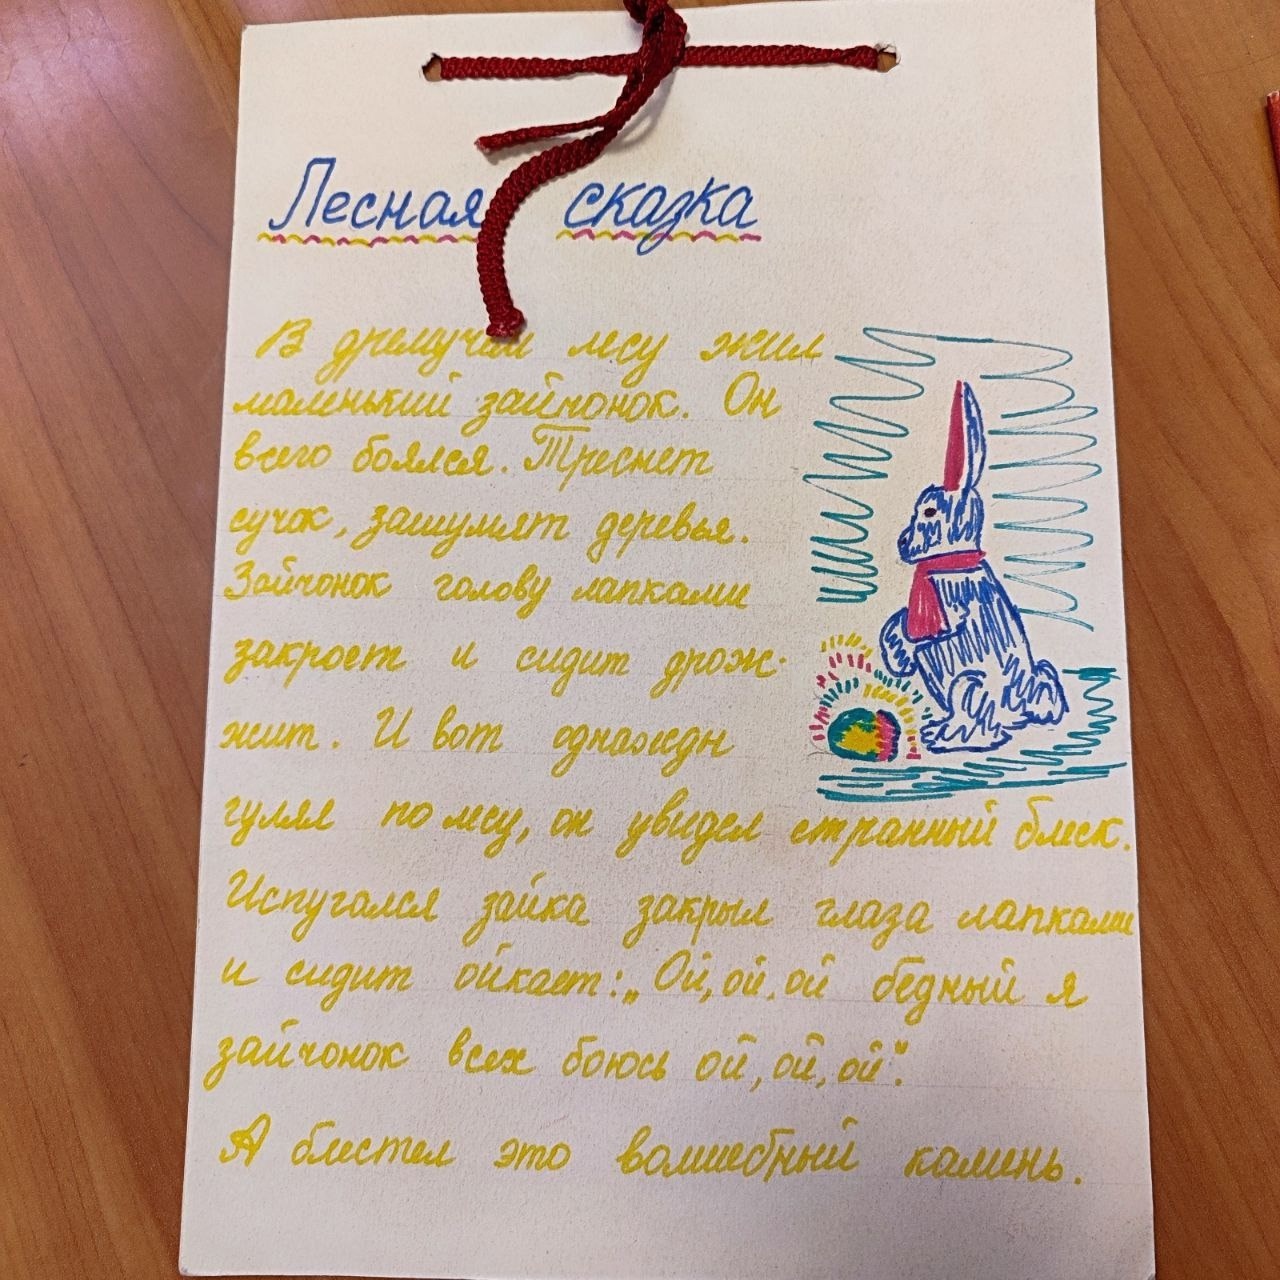 Лесная сказка
В дремучем лесу жил
маленький зайчонок. Он
всего боялся. Треснет
сучок, зашумят деревья.
Зайчонок голову лапками
закроет и сидит дрож-
жит. И вот однажды
гулял по лесу, он увидел странный блеск.
Испугался зайка закрыл глаза лапками
и сидит ойкает: „Ой, ой, ой бедный я
зайчонок всех боюсь ой, ой, ой".
А блестел это волшебный камень.